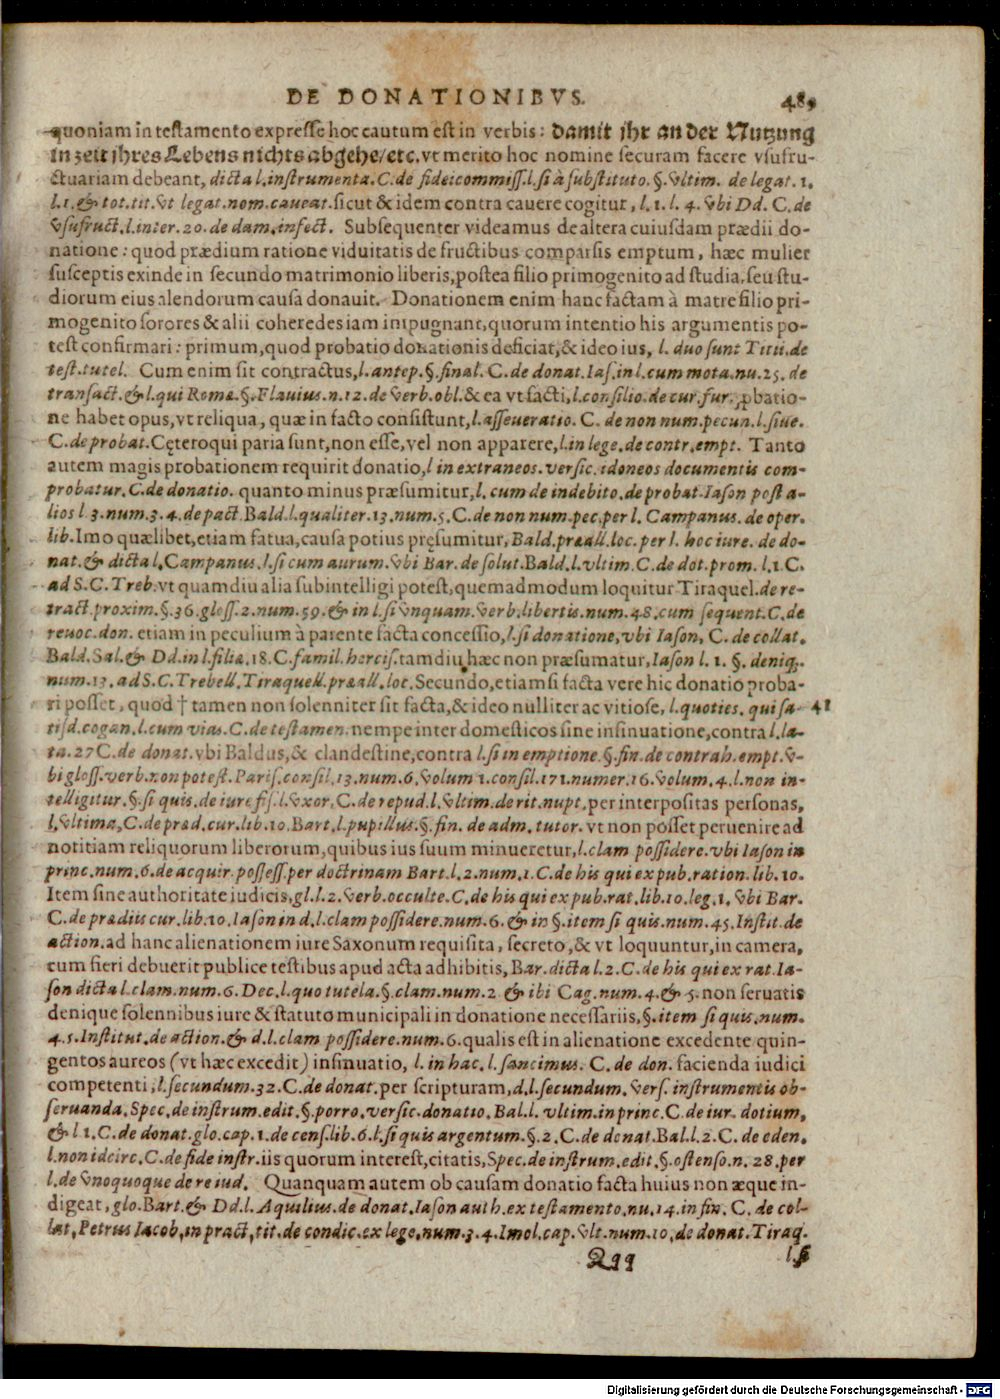 DE DONATIONIBVS. 489
quoniam in testamento expresse hoc cautum est in verbis: damit ihr an der Nutzung
in zeit ihres Lebens nichts abgehe/ etc. vt merito hoc nomine securam facere vsufru-
ctuariam debeant, dicta l. instrumenta. C. de fideicommiss. l. si à substituto. §. vltim. de legat. 1.
l. 1. & tot. tit. vt legat. nom. caueat. sicut & idem contra cauere cogitur, l. 1. l. 4. vbi Dd. C. de
vsufruct. l. inter. 20. de dam. infect. Subsequenter videamus de altera cuiusdam prædii do-
natione: quod prædium ratione viduitatis de fructibus comparsis emptum, hæc mulier
susceptis exinde in secundo matrimonio liberis, postea filio primogenito ad studia, seu stu-
diorum eius alendorum causa donauit. Donationem enim hanc factam à matre filio pri-
mogenito sorores & alii coheredes iam impugnant, quorum intentio his argumentis po-
test confirmari: primum, quod probatio donationis deficiat, & ideo ius, l. duo sunt Titii. de
test. tutel. Cum enim sit contractus, l. antep. §. final. C. de donat. Ias. in l. cum mota. nu. 25. de
transact. & l. qui Romæ. §. Flauius. n. 12. de verb. obl. & ea vt facti, l. consilio. de cur. fur. ꝓbatio-
ne habet opus, vt reliqua, quæ in facto consistunt, l. asseueratio. C. de non num. pecun. l. siue.
C. de probat. Cęteroqui paria sunt, non esse, vel non apparere, l. in lege. de contr. empt. Tanto
autem magis probationem requirit donatio, l in extraneos. versic. idoneos documentis com-
probatur. C. de donatio. quanto minus præsumitur, l. cum de indebito. de probat. Iason post a-
lios l 3. num. 3. 4. de pact. Bald. l. qualiter. 13. num. 5. C. de non num. pec. per l. Campanus. de oper.
lib. Imo quælibet, etiam fatua, causa potius pręsumitur, Bald. præall. loc. per l. hoc iure. de do-
nat. & dicta l. Campanus. l. si cum aurum. vbi Bar. de solut. Bald. l. vltim. C. de dot. prom. l. 1. C.
ad S. C. Treb. vt quamdiu alia subintelligi potest, quemadmodum loquitur Tiraquel. de re-
tract. proxim. §. 36. gloss. 2. num. 59. & in l. si vnquam. verb. libertis. num. 48. cum sequent. C. de
reuoc. don. etiam in peculium à parente facta concessio, l. si donatione, vbi Iason, C. de collat.
Bald. Sal. & Dd. in l. filiæ. 18. C. famil. hercis. tamdiu hæc non præsumatur, Iason l. 1. §. deniq.
num. 13. ad S. C. Trebell. Tiraquell. præall. loc. Secundo, etiamsi facta vere hic donatio proba-
ri posset, quod † tamen non solenniter sit facta, & ideo nulliter ac vitiose, l. quoties. qui sa- 41
tisd. cogan. l. cum vias. C. de testamen. nempe inter domesticos sine insinuatione, contra l. la-
ta. 27 C. de donat. vbi Baldus, & clandestine, contra l. si in emptione. §. fin. de contrah. empt. v-
bi gloss. verb. non potest. Paris. consil. 13. num. 6. volum 1. consil. 171. numer. 16. volum. 4. l. non in-
telligitur. §. si quis. de iure fis. l. vxor. C. de repud. l. vltim. de rit. nupt. per interpositas personas,
l. vltima, C. de præd. cur. lib. 10. Bart. l. pupillus. §. fin. de adm. tutor. vt non posset peruenire ad
notitiam reliquorum liberorum, quibus ius suum minueretur, l. clam possidere. vbi Iason in
princ. num. 6. de acquir. possess. per doctrinam Bart. l. 2. num. 1. C. de his qui ex pub. ration. lib. 10.
Item sine authoritate iudicis, gl. l. 2. verb. occulte. C. de his qui ex pub. rat. lib. 10. leg. 1. vbi Bar.
C. de prædiis cur. lib. 10. Iason in d. l. clam possidere. num. 6. & in §. item si quis. num. 45. Instit. de
action. ad hanc alienationem iure Saxonum requisita, secreto, & vt loquuntur, in camera,
cum fieri debuerit publice testibus apud acta adhibitis, Bar. dicta l. 2. C. de his qui ex rat. Ia-
son dicta l. clam. num. 6. Dec. l. quo tutela. §. clam. num. 2 & ibi Cag. num. 4. & 5. non seruatis
denique solennibus iure & statuto municipali in donatione necessariis, §. item si quis. num.
4. 5. Institut. de action. & d. l. clam possidere. num. 6. qualis est in alienatione excedente quin-
gentos aureos (vt hæc excedit) insinuatio, l. in hac. l. sancimus. C. de don. facienda iudici
competenti, l. secundum. 32. C. de donat. per scripturam, d. l. secundum. vers. instrumentis ob-
seruanda. Spec. de instrum. edit. §. porro. versic. donatio. Bal. l. vltim. in princ. C. de iur. dotium,
& l 1. C. de donat. glo. cap. 1. de cens. lib. 6. l. si quis argentum. §. 2. C. de donat. Bal. l. 2. C. de eden.
l. non idcirc. C. de fide instr. iis quorum interest, citatis, Spec. de instrum. edit. §. ostenso. n. 28. per
l. de vnoquoque de re iud. Quanquam autem ob causam donatio facta huius non æque in-
digeat, glo. Bart. & Dd. l. Aquilius. de donat. Iason auth. ex testamento. nu. 14. in fin. C. de col-
lat. Petrus Iacob. in pract. tit. de condic. ex lege. num. 3. 4. Imol. cap. vlt. num. 10. de donat. Tiraq.
Qqq l. si
Digitalisierung gefördert durch die Deutsche Forschungsgemeinschaft - DFG